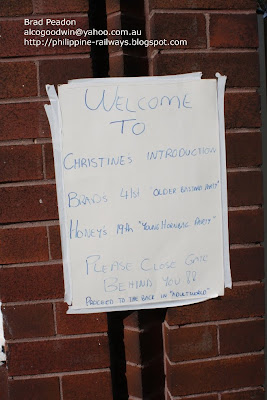 Brad Peadon
alcogoodwin@yahoo.com.au
http://philippine-railways.blogspot.com
WELCOME
TO
CHRISTINE'S INTRODUCTION
BRAD'S 41st "OLDER BASTARD PARTY"
HONEY'S 19th "YOUNG HORNBAG PARTY"
PLEASE CLOSE GATE
BEHIND YOU!!
PROCEED TO THE BACK IN "ADULTWORLD"